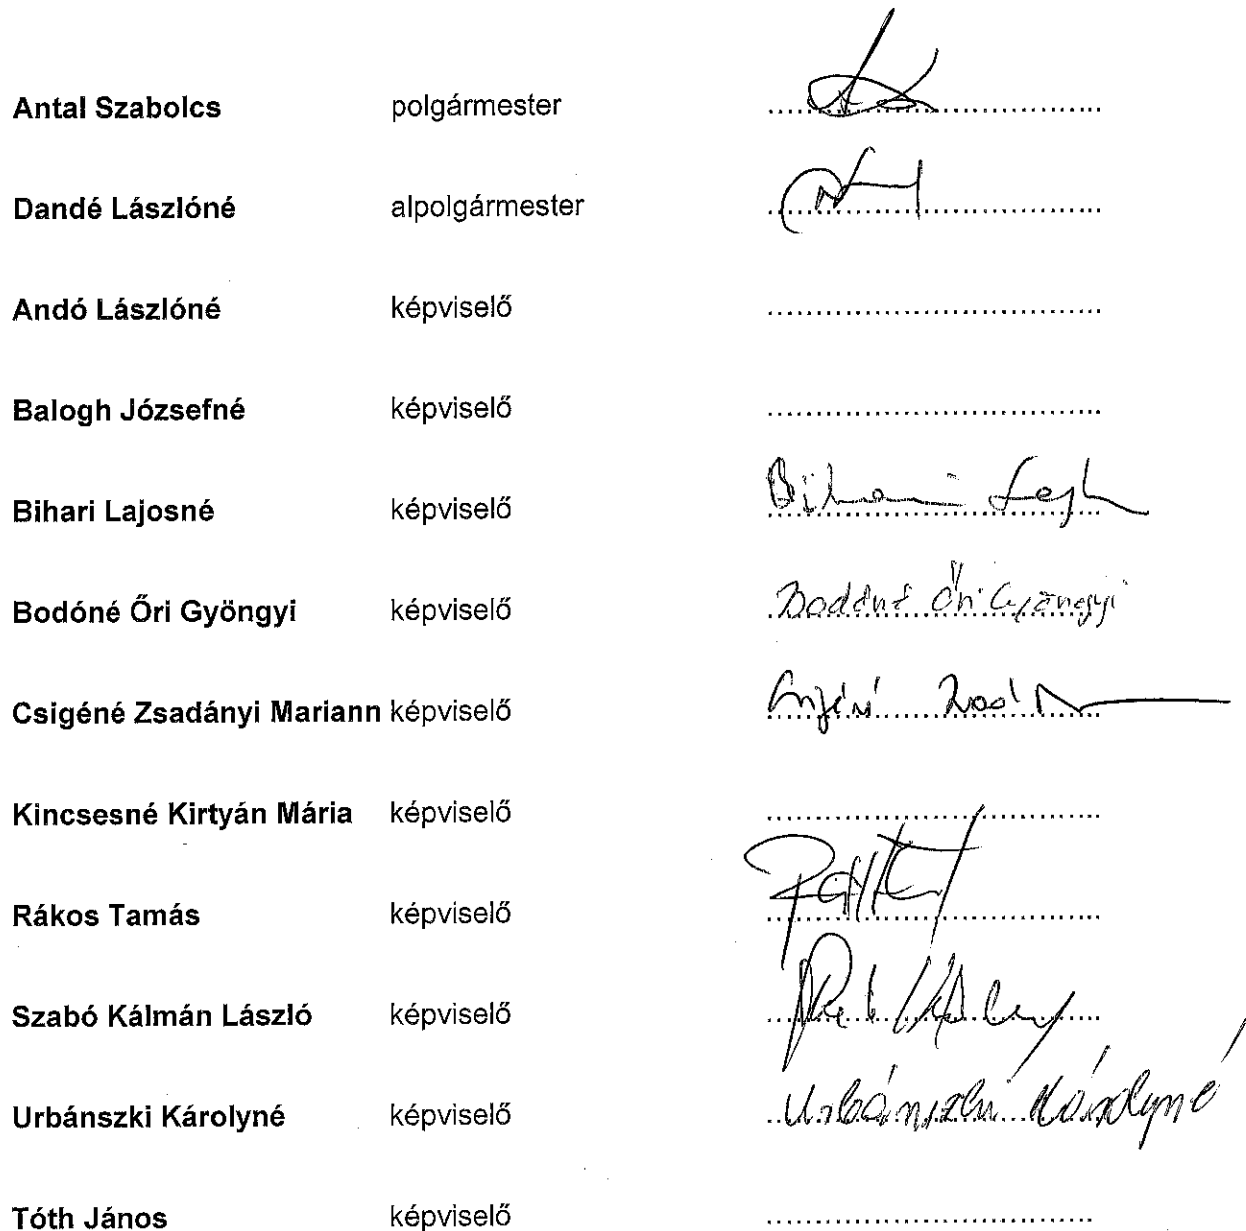 Antal Szabolcs polgármester
Dandé Lászlóné alpolgármester
Andó Lászlóné képviselő
Balogh Józsefné képviselő
Bihari Lajosné képviselő Bihari
Bodóné Őri Gyöngyi képviselő Bodóné Őri Gyöngyi
Csigéné Zsadányi Mariann képviselő
Kincsesné Kirtyán Mária képviselő
Rákos Tamás képviselő
Szabó Kálmán László képviselő
Urbánszki Károlyné képviselő Urbánszki Károlyné
Tóth János képviselő